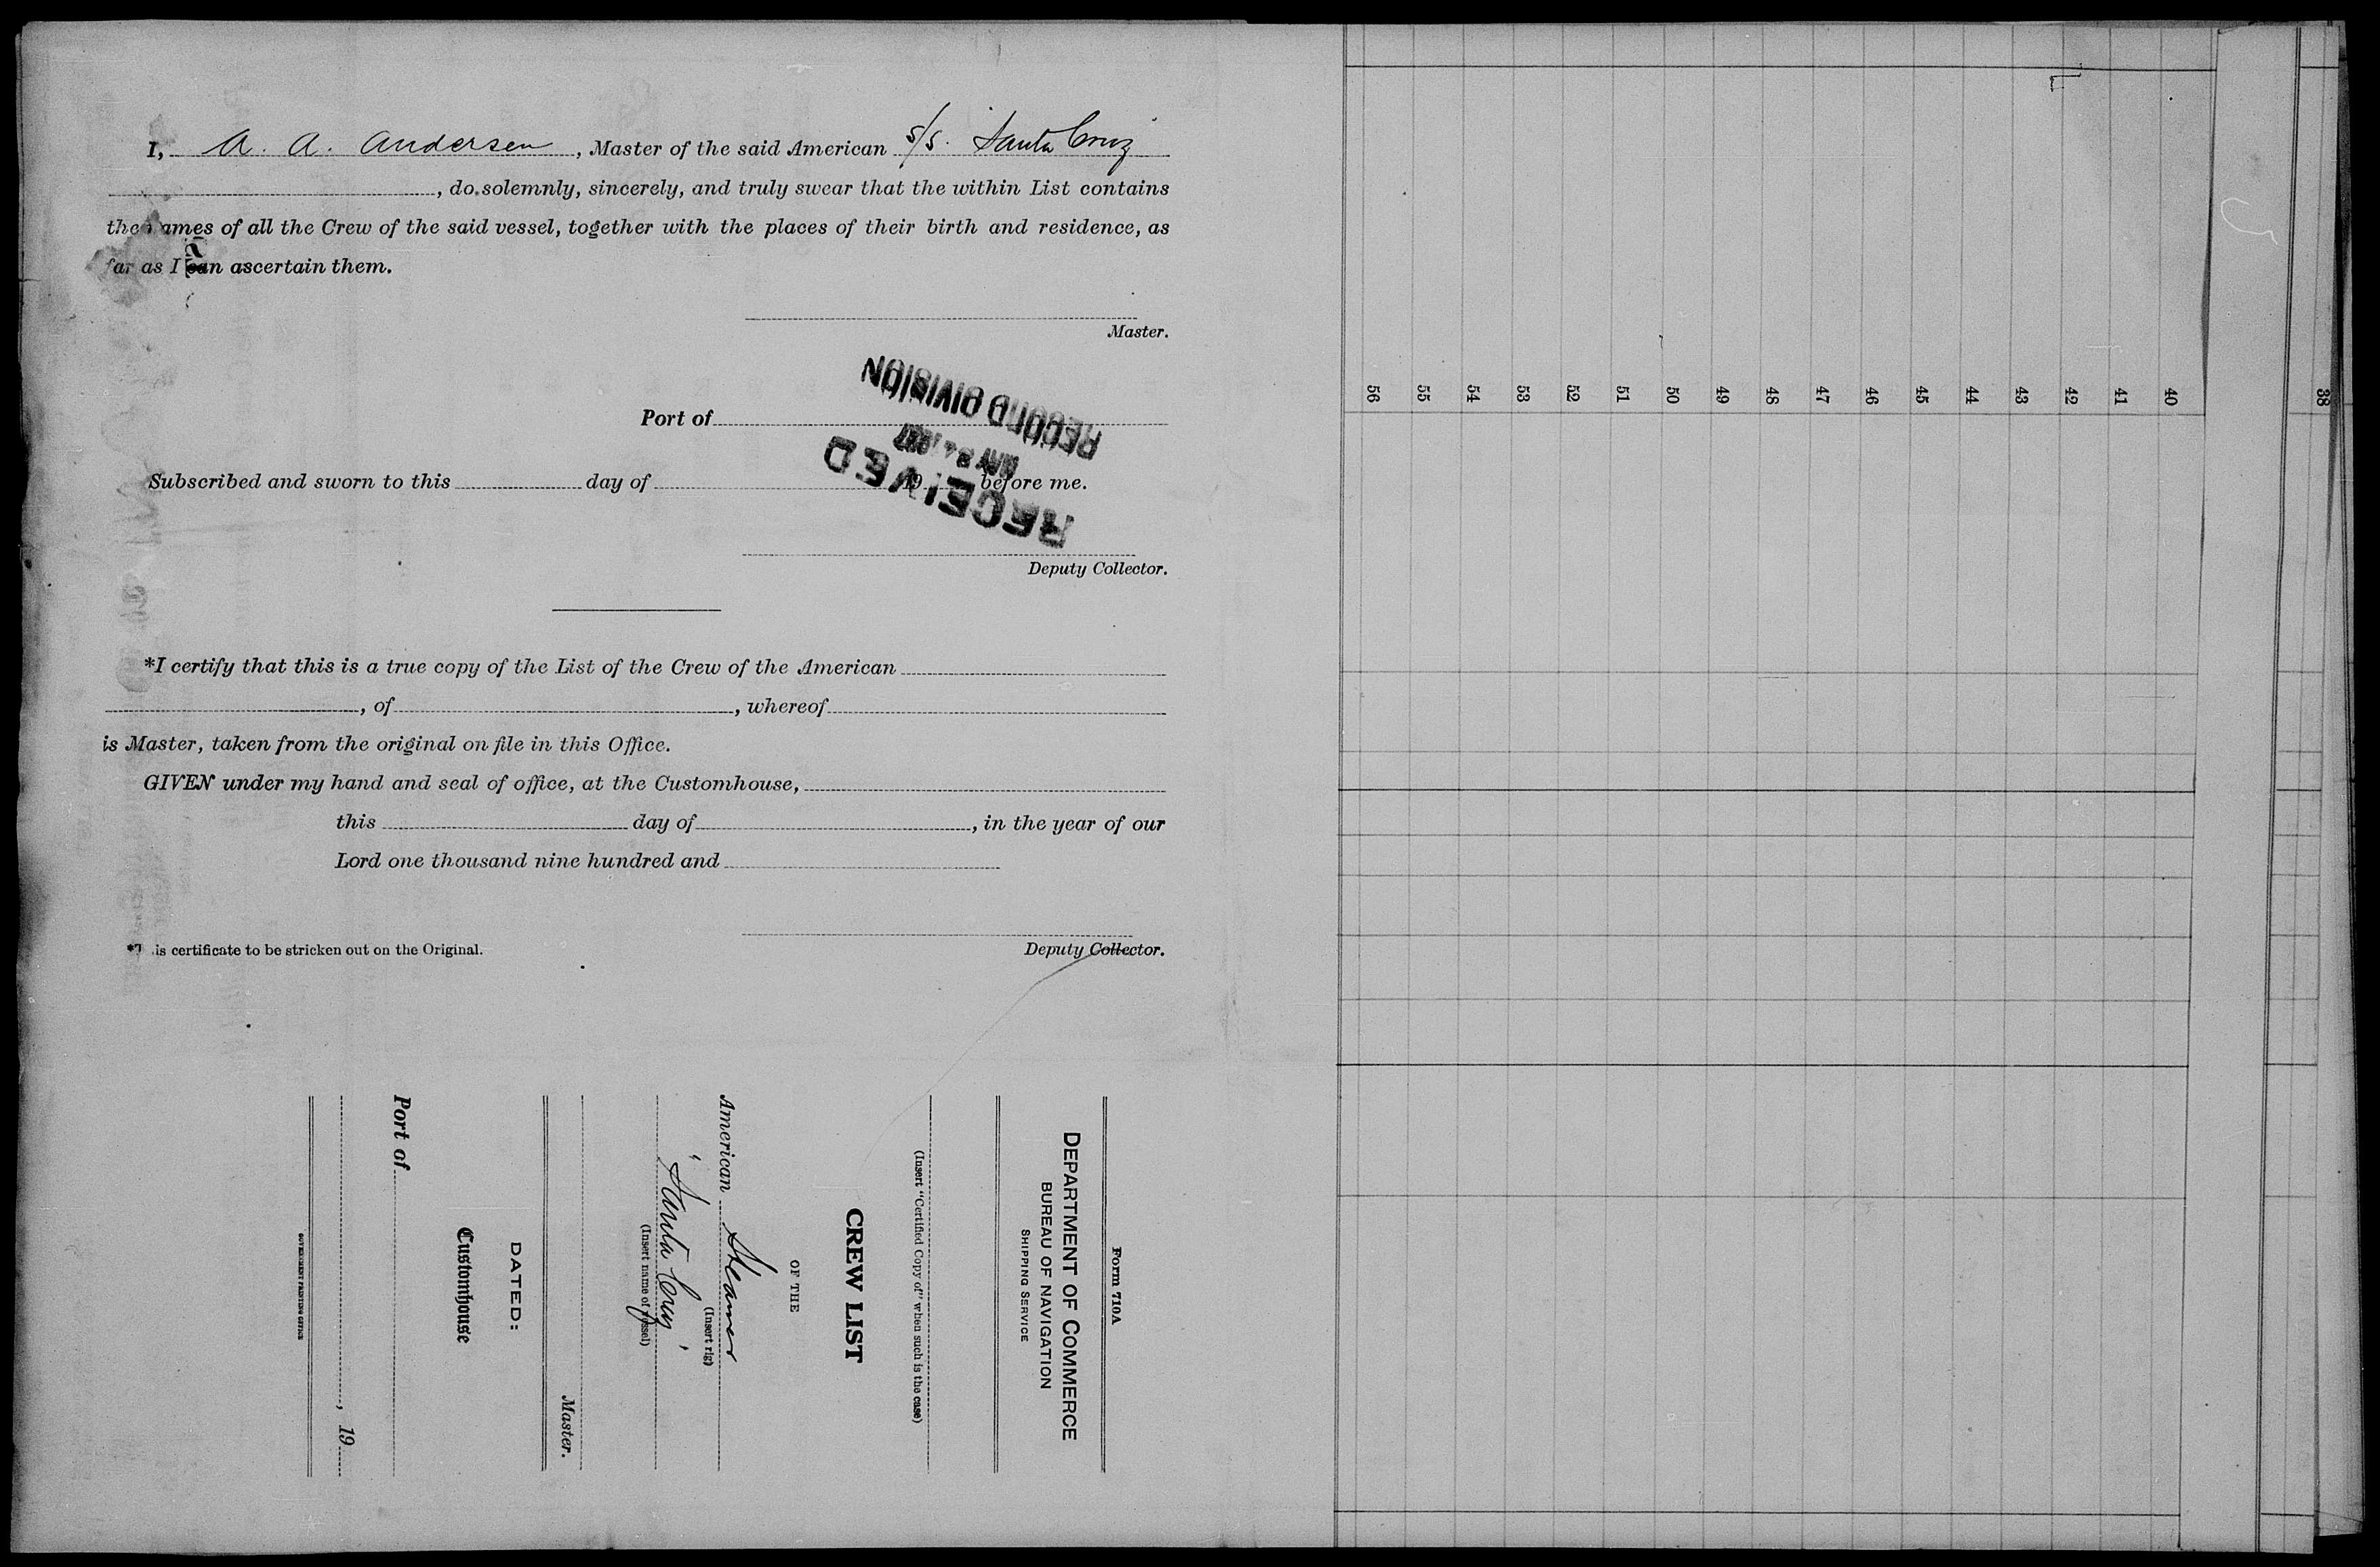 I, A. A. Andersen, Master of the said American S/S. "Santa Cruz"
, do solemnly, sincerely, and truly swear that the within List contains
the names of all the Crew of the said vessel, together with the places of their birth and residence, as
far as I can ascertain them.
Master.
RECORD DIVISION
Port of
RECEIVED
Subscribed and sworn to this day of 19 before me.
Deputy Collector.
*I certify that this is a true copy of the List of the Crew of the American
, of , whereof
is Master, taken from the original on file in this Office.
GIVEN under my hand and seal of office, at the Customhouse,
this day of , in the year of our
Lord one thousand nine hundred and
Deputy Collector.
*This certificate to be stricken out on the Original.
Form 710A
DEPARTMENT OF COMMERCE
BUREAU OF NAVIGATION
SHIPPING SERVICE
(Insert "Certified Copy of" when such is the case)
CREW LIST
OF THE
American Steamer
(Insert rig)
"Santa Cruz"
(Insert name of vessel)
Master.
DATED:
Customhouse
Port of
, 19
GOVERNMENT PRINTING OFFICE
38
40
41
42
43
44
45
46
47
48
49
50
51
52
53
54
55
56